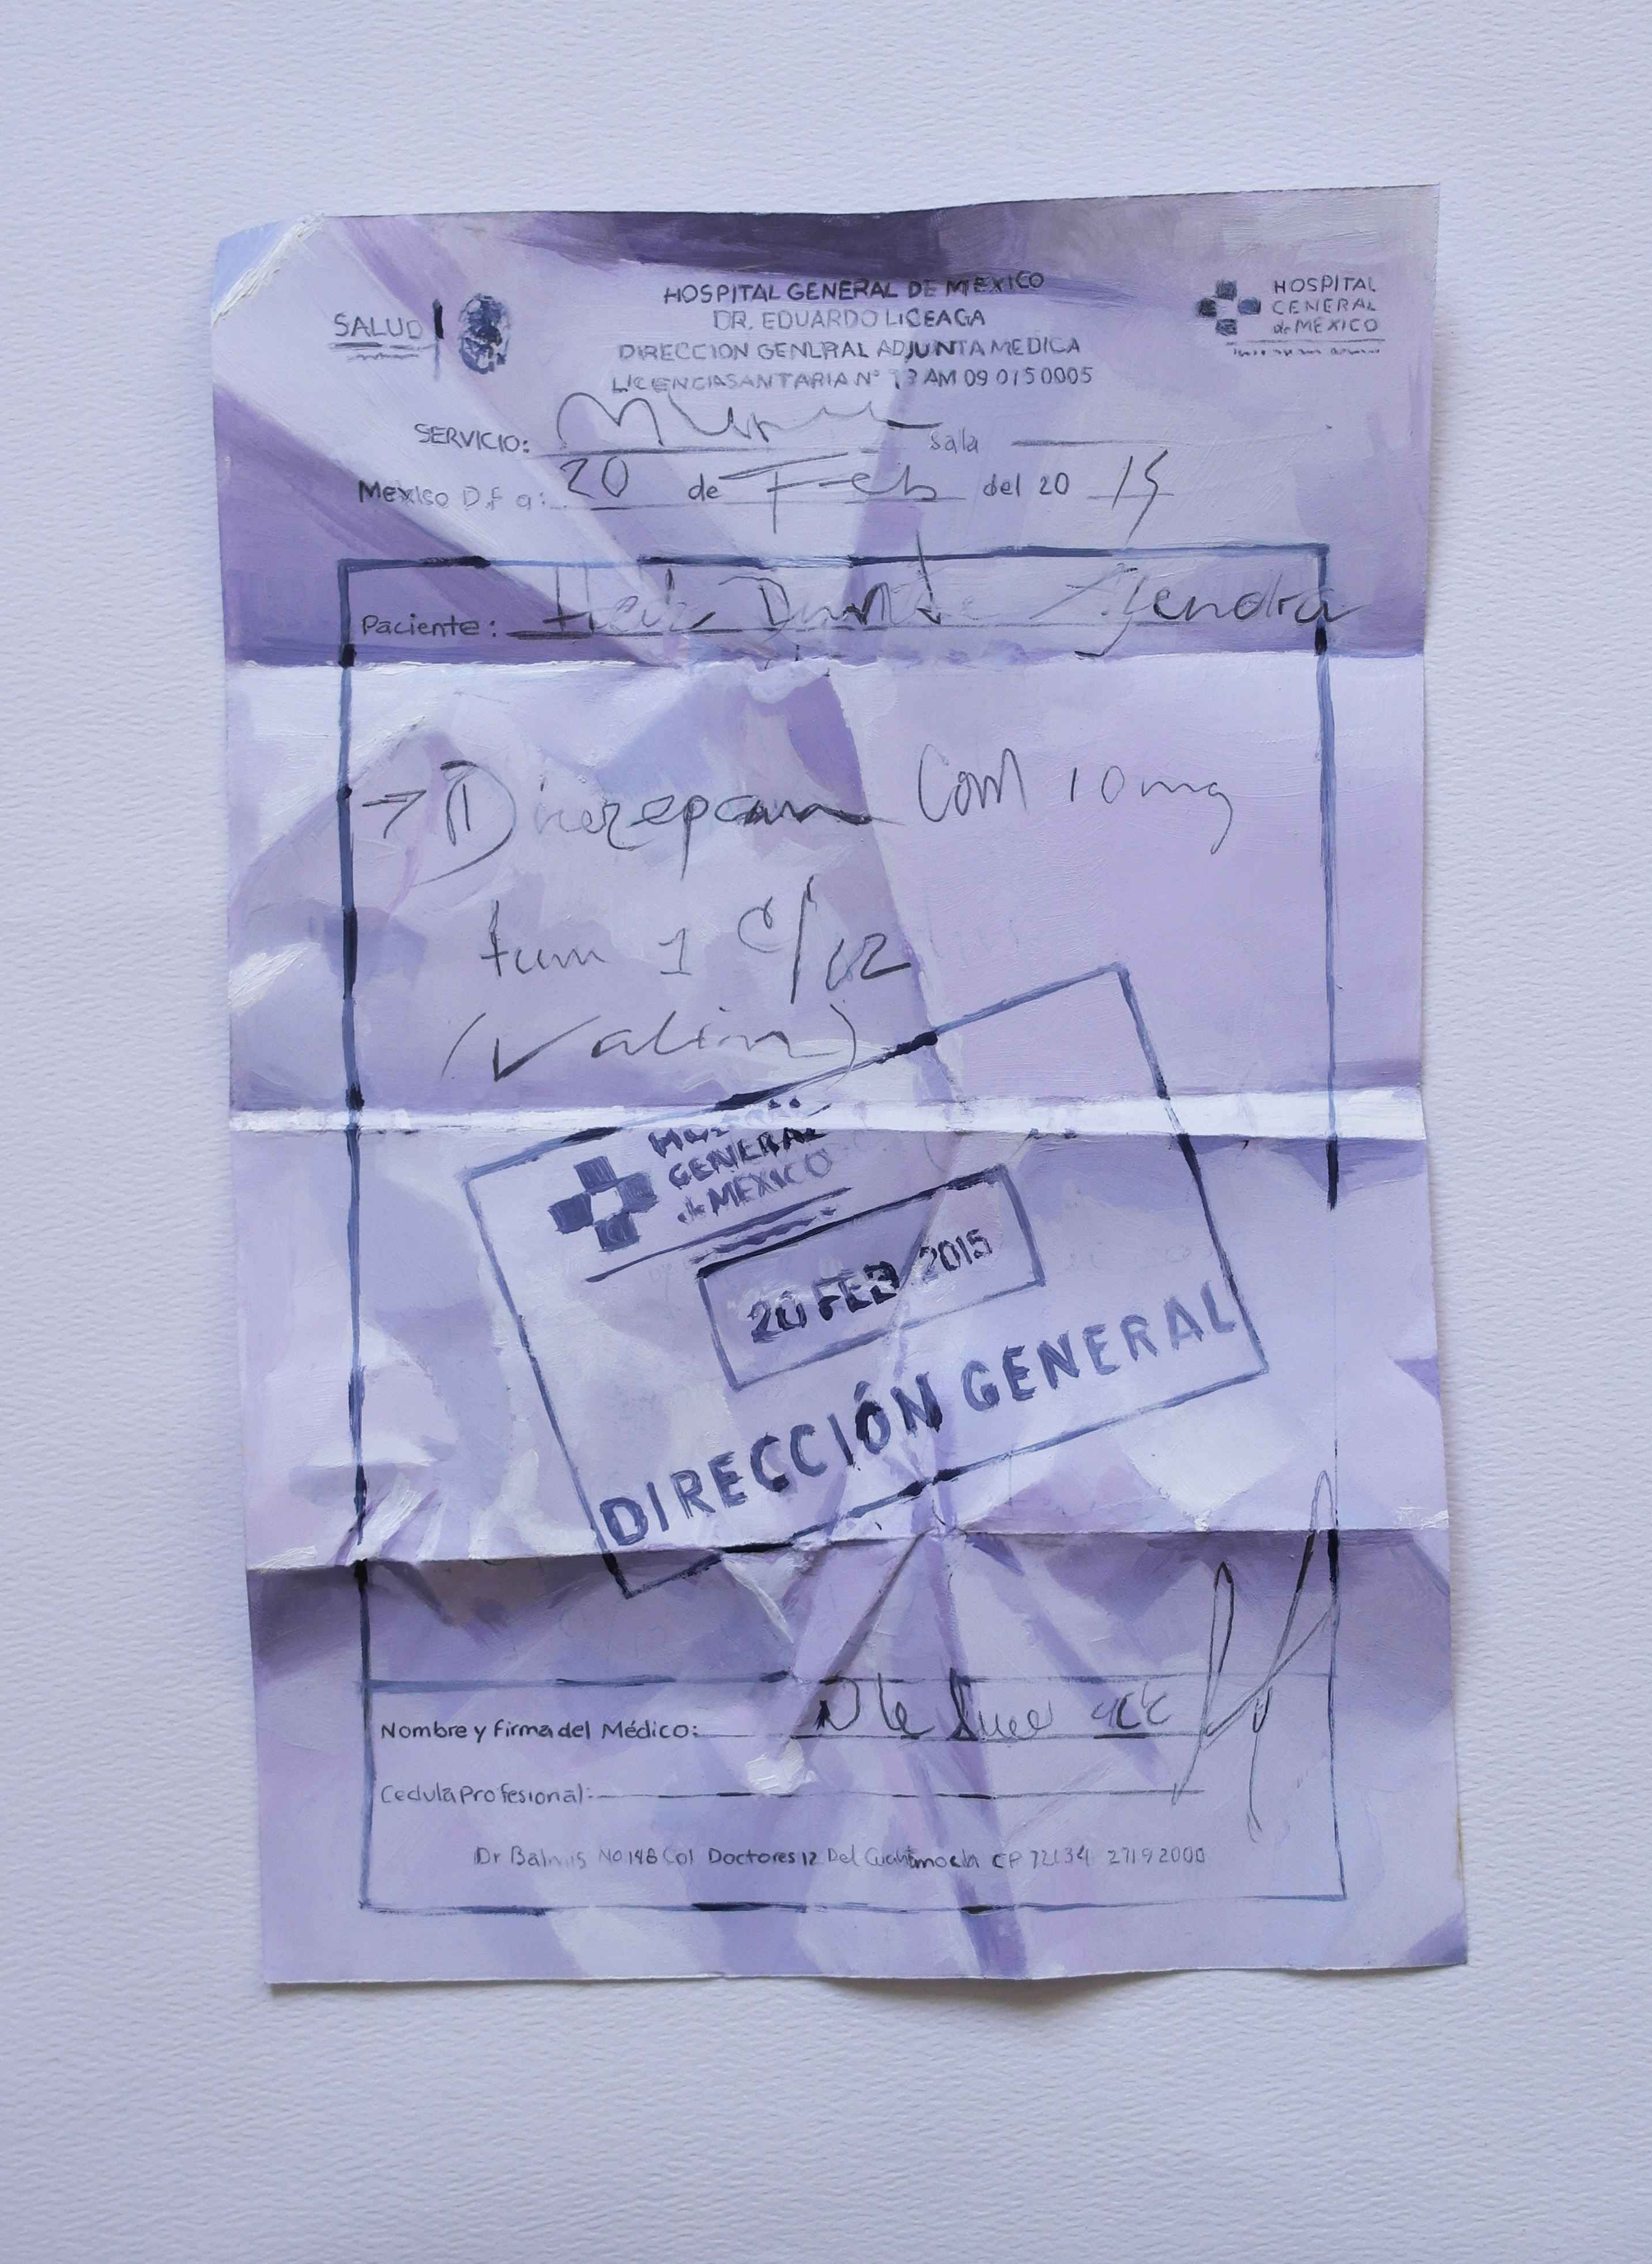 SALUD
HOSPITAL GENERAL DE MEXICO
DR. EDUARDO LICEAGA
DIRECCION GENLRAL ADJUNTA MEDICA
LICENCIASANTARIA Nº 13 AM 09 015 0005
HOSPITAL
GENERAL
de MEXICO
SERVICIO: Sala
Mexico D.F a: 20 de Feb del 20 15
Paciente:
→ ① com 10mg
tum 1 c/12
(Valium)
GENERAL
de MEXICO
20 FEB 2015
DIRECCIÓN GENERAL
Nombre y firma del Médico:
Cedula Profesional:
Dr Balmis No 148 Col Doctores 12 Del CP 27192000